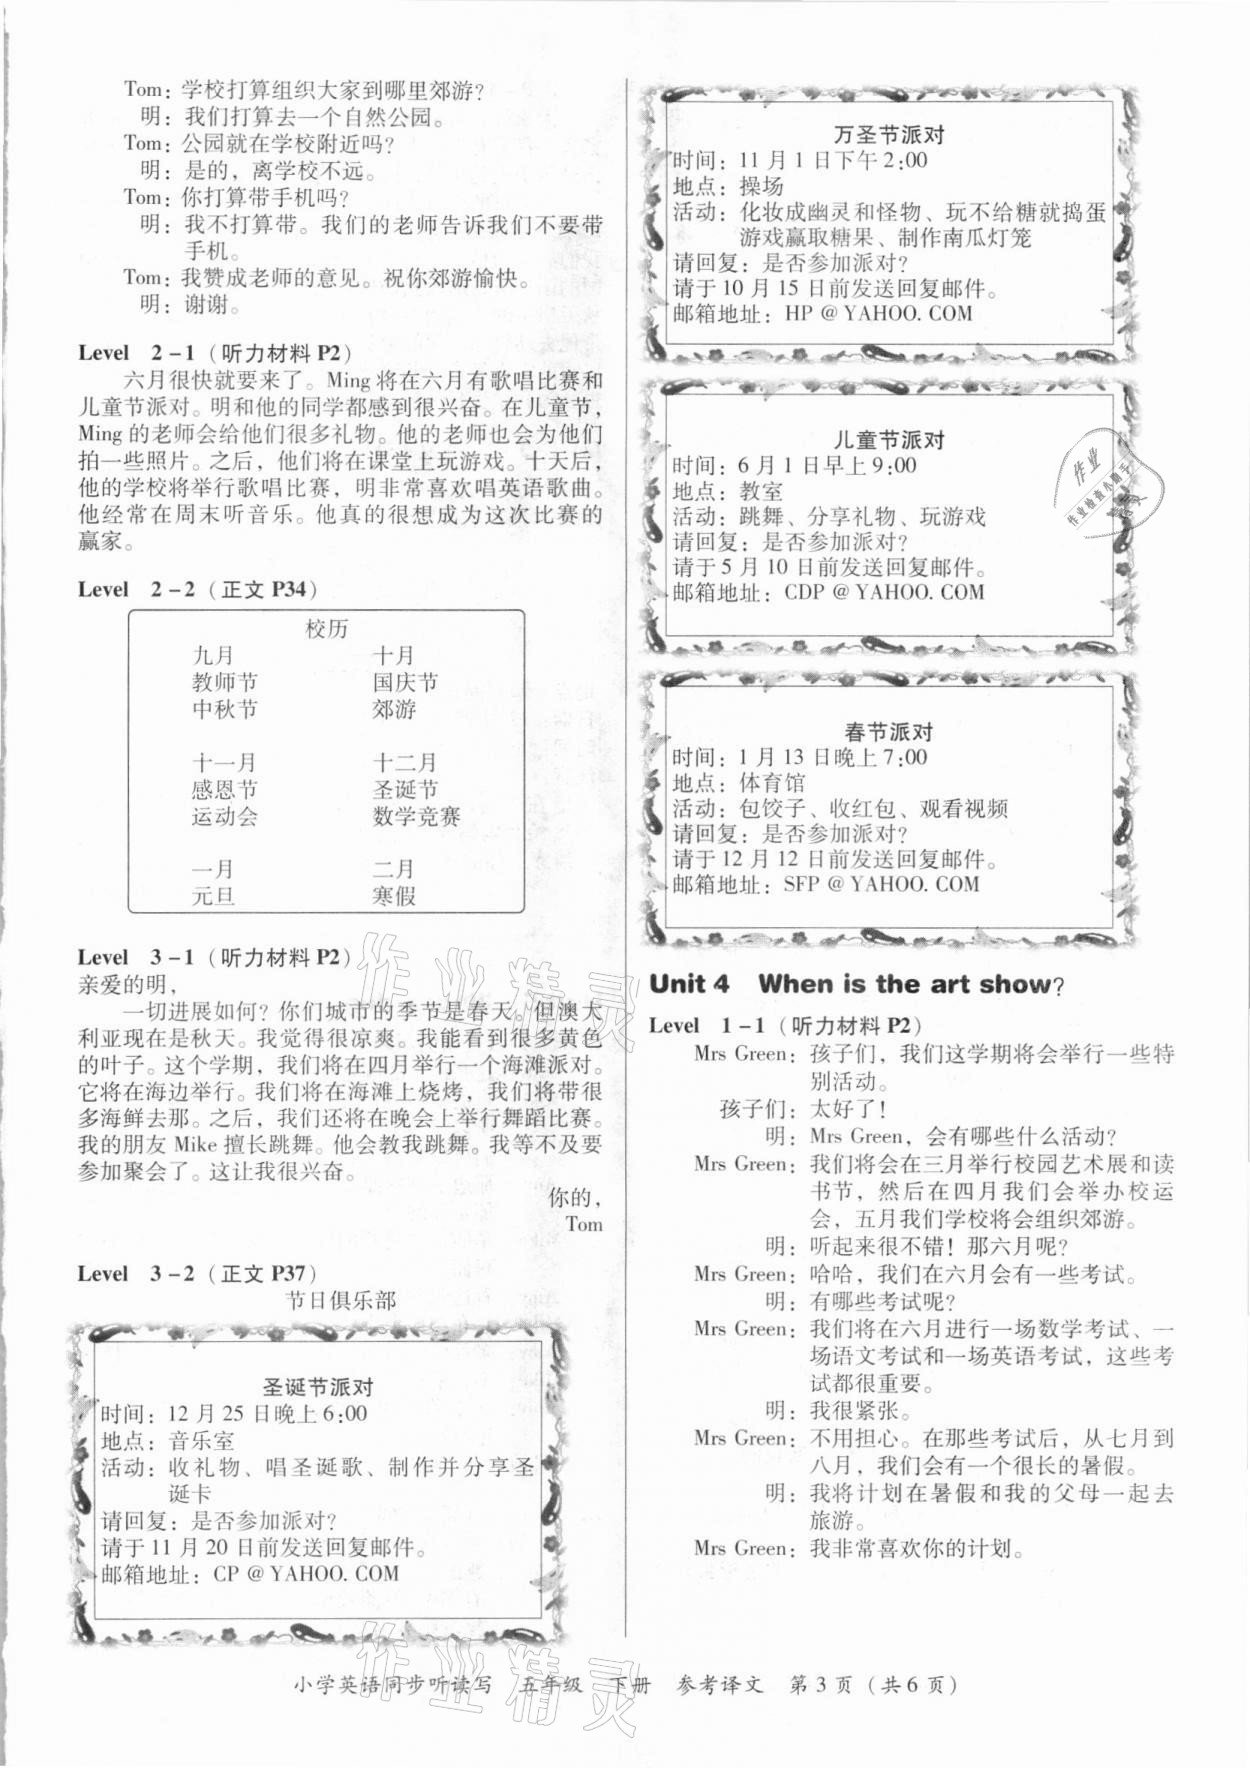 Tom：学校打算组织大家到哪里郊游？
明：我们打算去一个自然公园。
Tom：公园就在学校附近吗？
明：是的，离学校不远。
Tom：你打算带手机吗？
明：我不打算带。我们的老师告诉我们不要带
手机。
Tom：我赞成老师的意见。祝你郊游愉快。
明：谢谢。
Level 2-1（听力材料 P2）
六月很快就要来了。Ming 将在六月有歌唱比赛和
儿童节派对。明和他的同学都感到很兴奋。在儿童节，
Ming 的老师会给他们很多礼物。他的老师也会为他们
拍一些照片。之后，他们将在课堂上玩游戏。十天后，
他的学校将举行歌唱比赛，明非常喜欢唱英语歌曲。
他经常在周末听音乐。他真的很想成为这次比赛的
赢家。
Level 2-2（正文 P34）
校历
九月 十月
教师节 国庆节
中秋节 郊游
十一月 十二月
感恩节 圣诞节
运动会 数学竞赛
一月 二月
元旦 寒假
Level 3-1（听力材料 P2）
亲爱的明，
一切进展如何？你们城市的季节是春天。但澳大
利亚现在是秋天。我觉得很凉爽。我能看到很多黄色
的叶子。这个学期，我们将在四月举行一个海滩派对。
它将在海边举行。我们将在海滩上烧烤，我们将带很
多海鲜去那。之后，我们还将在晚会上举行舞蹈比赛。
我的朋友 Mike 擅长跳舞。他会教我跳舞。我等不及要
参加聚会了。这让我很兴奋。
你的，
Tom
Level 3-2（正文 P37）
节日俱乐部
圣诞节派对
时间：12 月 25 日晚上 6:00
地点：音乐室
活动：收礼物、唱圣诞歌、制作并分享圣
诞卡
请回复：是否参加派对？
请于 11 月 20 日前发送回复邮件。
邮箱地址：CP @ YAHOO. COM
万圣节派对
时间：11 月 1 日下午 2:00
地点：操场
活动：化妆成幽灵和怪物、玩不给糖就捣蛋
游戏赢取糖果、制作南瓜灯笼
请回复：是否参加派对？
请于 10 月 15 日前发送回复邮件。
邮箱地址：HP @ YAHOO. COM
儿童节派对
时间：6 月 1 日早上 9:00
地点：教室
活动：跳舞、分享礼物、玩游戏
请回复：是否参加派对？
请于 5 月 10 日前发送回复邮件。
邮箱地址：CDP @ YAHOO. COM
春节派对
时间：1 月 13 日晚上 7:00
地点：体育馆
活动：包饺子、收红包、观看视频
请回复：是否参加派对？
请于 12 月 12 日前发送回复邮件。
邮箱地址：SFP @ YAHOO. COM
Unit 4 When is the art show?
Level 1-1（听力材料 P2）
Mrs Green：孩子们，我们这学期将会举行一些特
别活动。
孩子们：太好了！
明：Mrs Green，会有哪些什么活动？
Mrs Green：我们将会在三月举行校园艺术展和读
书节，然后在四月我们会举办校运
会，五月我们学校将会组织郊游。
明：听起来很不错！那六月呢？
Mrs Green：哈哈，我们在六月会有一些考试。
明：有哪些考试呢？
Mrs Green：我们将在六月进行一场数学考试、一
场语文考试和一场英语考试，这些考
试都很重要。
明：我很紧张。
Mrs Green：不用担心。在那些考试后，从七月到
八月，我们会有一个很长的暑假。
明：我将计划在暑假和我的父母一起去
旅游。
Mrs Green：我非常喜欢你的计划。
小学英语同步听读写 五年级 下册 参考译文 第 3 页（共 6 页）
作业精灵
作业精灵
作业
作业检查小助手